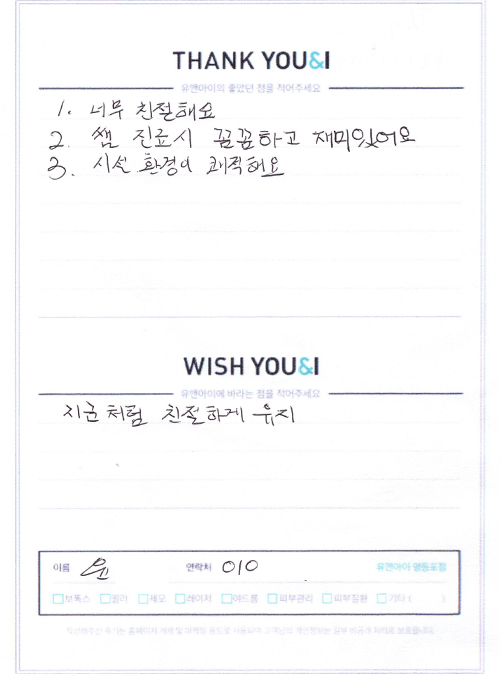 THANK YOU&I
유앤아이의 좋았던 점을 적어주세요
1. 너무 친절해요
2. 쌤 진료시 꼼꼼하고 재미있어요
3. 시선 환경이 쾌적해요
WISH YOU&I
유앤아이에 바라는 점을 적어주세요
지금처럼 친절하게 유지
이름 윤 연락처 010 유앤아이 영등포점
보톡스 필러 제모 레이저 여드름 피부관리 피부질환 기타 ( )